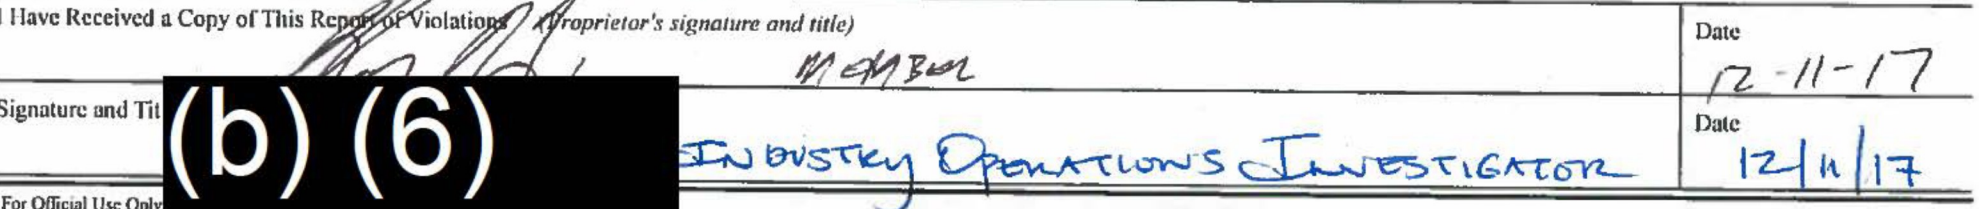 I Have Received a Copy of This Report of Violations (Proprietor's signature and title)
Date
MEMBER
12-11-17
Signature and Tit
(b) (6)
INDUSTRY OPERATIONS INVESTIGATOR
Date
12/11/17
For Official Use Only